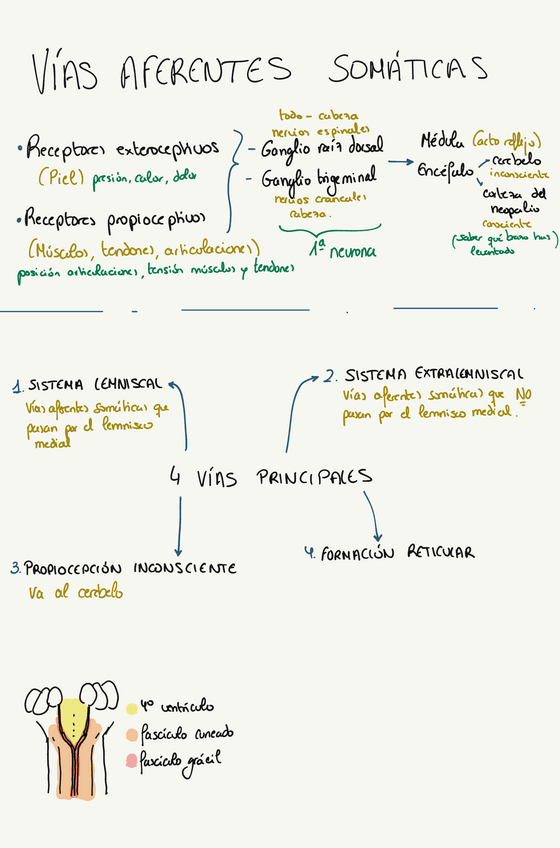 VÍAS AFERENTES SOMÁTICAS
• Receptores exteroceptivos
(Piel) presión, calor, dolor
• Receptores propioceptivos
(Músculos, tendones, articulaciones)
posición articulaciones, tensión músculos y tendones
todo - cabeza
nervios espinales
- Ganglio raíz dorsal
- Ganglio trigeminal
nervios craneales
cabeza.
1ª neurona
Médula (acto reflejo)
Encéfalo
cerebelo
inconsciente
corteza del
neopalio
consciente
(saber qué brazo has
levantado
1. SISTEMA LEMNISCAL
Vías aferentes somáticas que
pasan por el lemnisco
medial
2. SISTEMA EXTRALEMNISCAL
Vías aferentes somáticas que NO
pasan por el lemnisco medial.
4 VÍAS PRINCIPALES
3. PROPIOCEPCIÓN INCONSCIENTE
Va al cerebelo
4. FORMACIÓN RETICULAR
4º ventrículo
fascículo cuneado
fascículo grácil